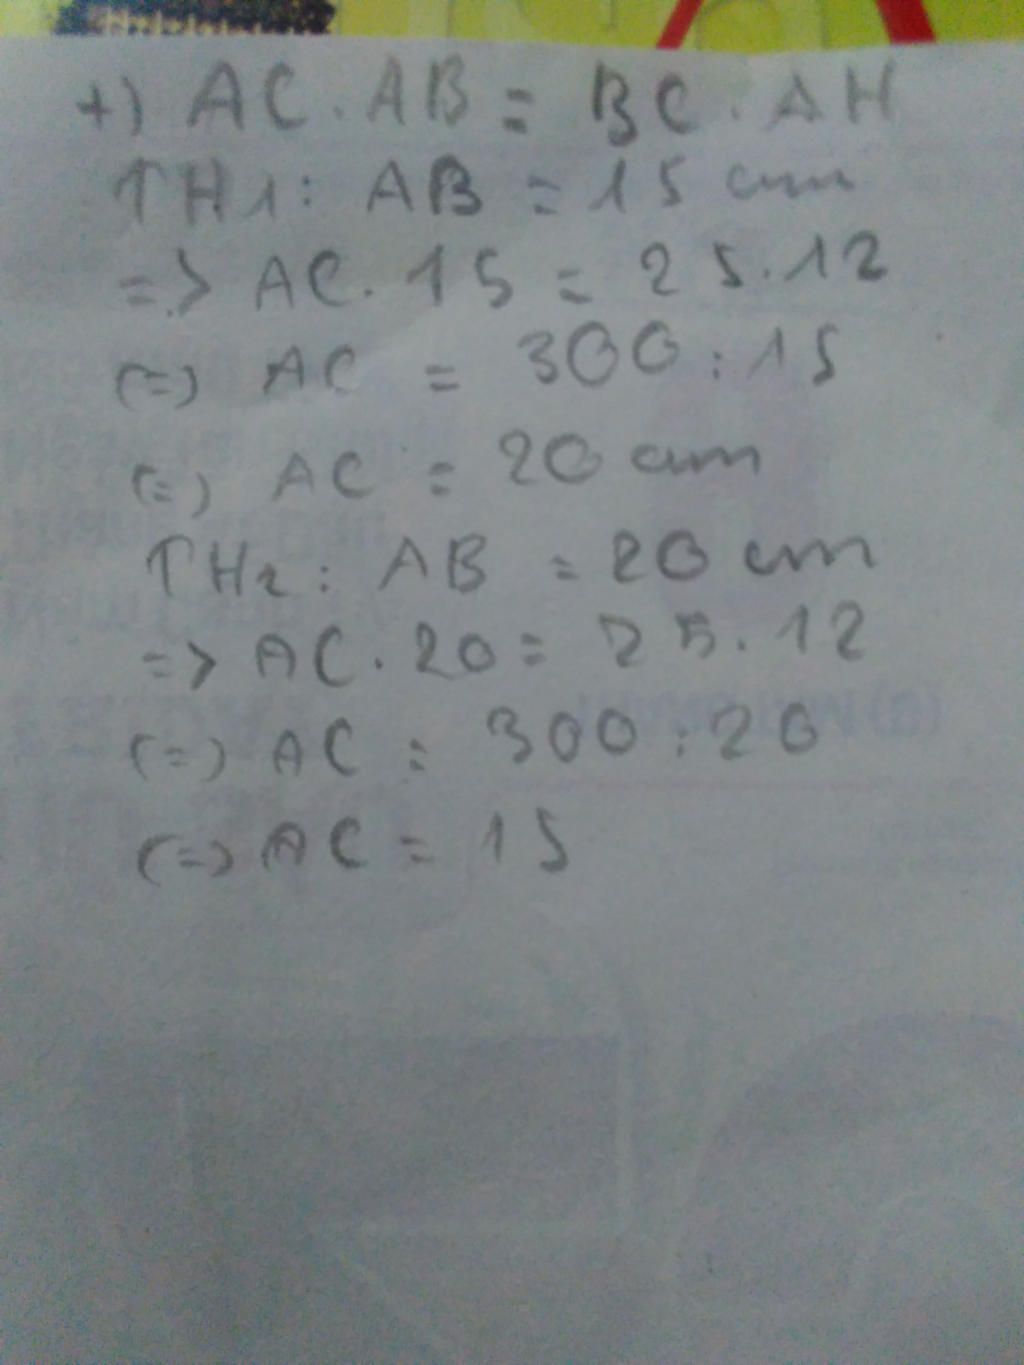 +) AC . AB = BC . AH
TH1: AB = 15 cm
=> AC . 15 = 25 . 12
(=) AC = 300 : 15
(=) AC = 20 cm
TH2: AB = 20 cm
=> AC . 20 = 25 . 12
(=) AC = 300 : 20
(=) AC = 15